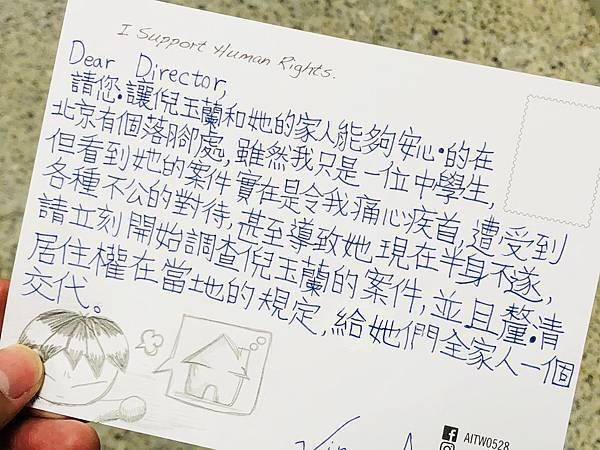 I Support Human Rights.
Dear Director,
請您·讓倪玉蘭和她的家人能夠安心·的在
北京有個落腳處,雖然我只是一位中學生,
但看到她的案件實在是令我痛心疾首,遭受到
各種不公的對待,甚至導致她現在半身不遂,
請立刻開始調查倪玉蘭的案件,並且釐·清
居住權在當地的規定,給她們全家人一個
交代。
AITW0528